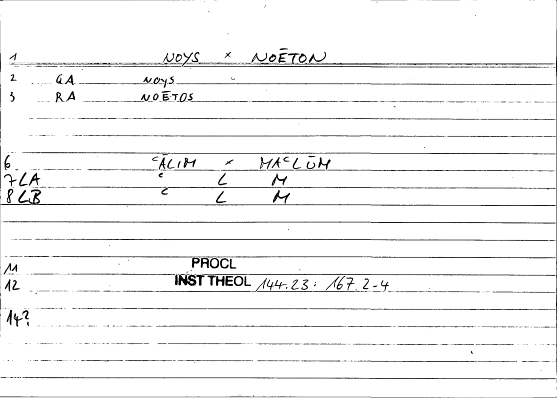 1 NOYS × NOĒTON
2 GA NOYS
3 RA NOĒTOS
6 ʿĀLIM × MAʿLŪM
7 LA ʿ L M
8 LB ʿ L M
11 PROCL
12 INST THEOL 144.23: 167.2-4
14?